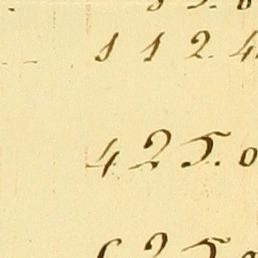 112.4
425.0
625.0